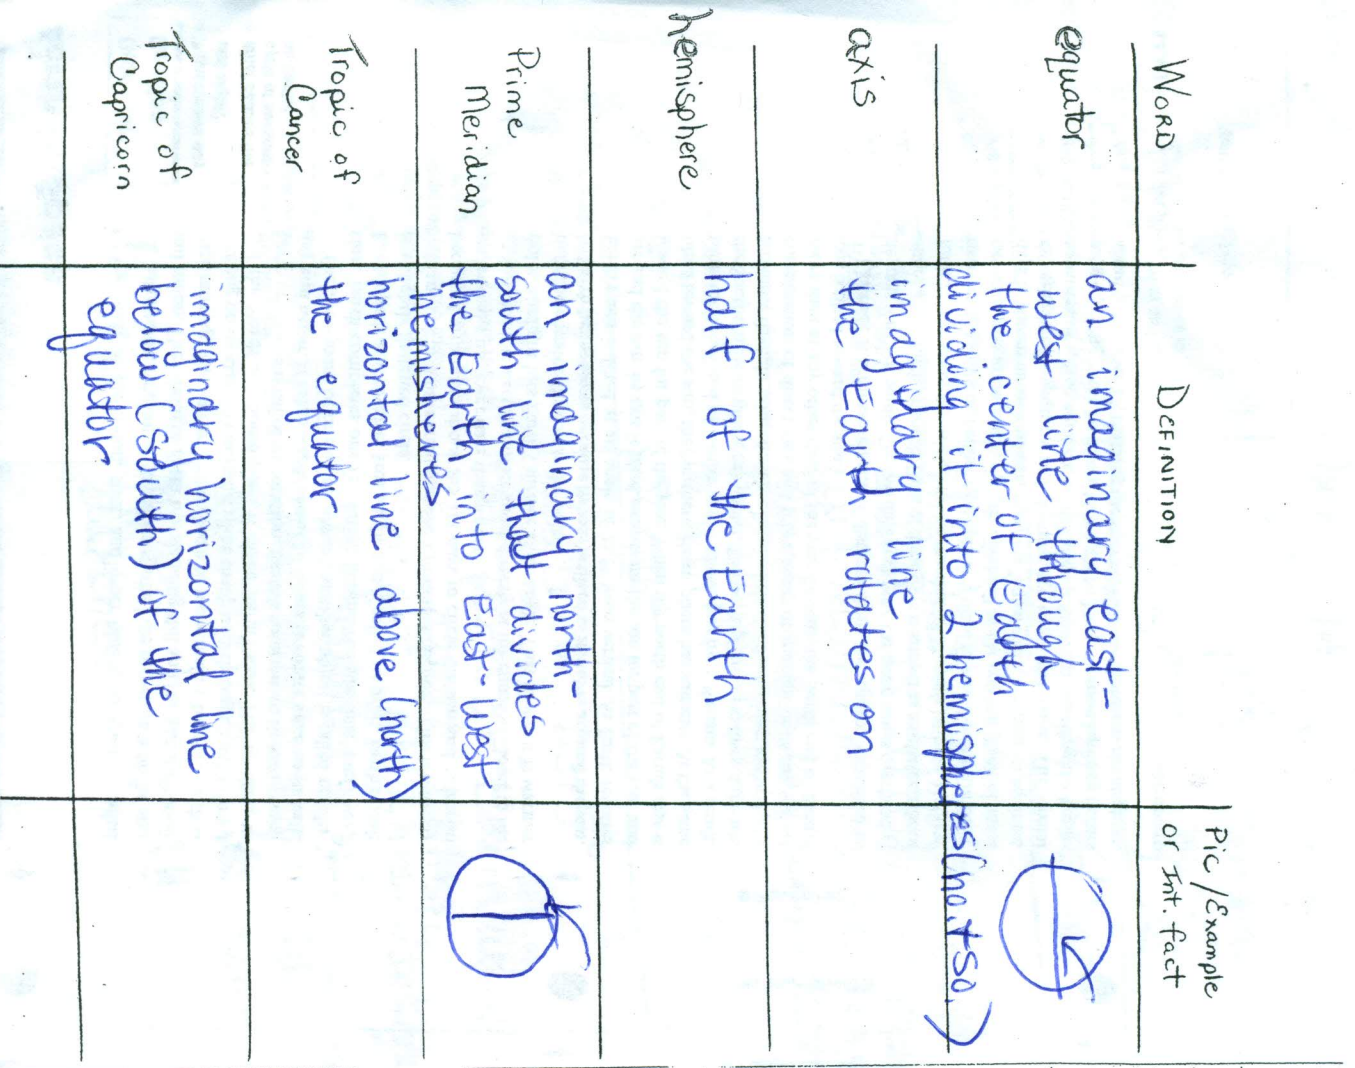 WORD
DEFINITION
Pic/Example
or Int. fact
equator
an imaginary east-
west line through
the center of Earth
dividing it into 2 hemispheres (no. + so.)
axis
imaginary line
the Earth rotates on
hemisphere
half of the Earth
Prime
Meridian
an imaginary north-
south line that divides
the Earth into East-West
hemisheres
Tropic of
Cancer
horizontal line above (north)
the equator
Tropic of
Capricorn
imaginary horizontal line
below (south) of the
equator